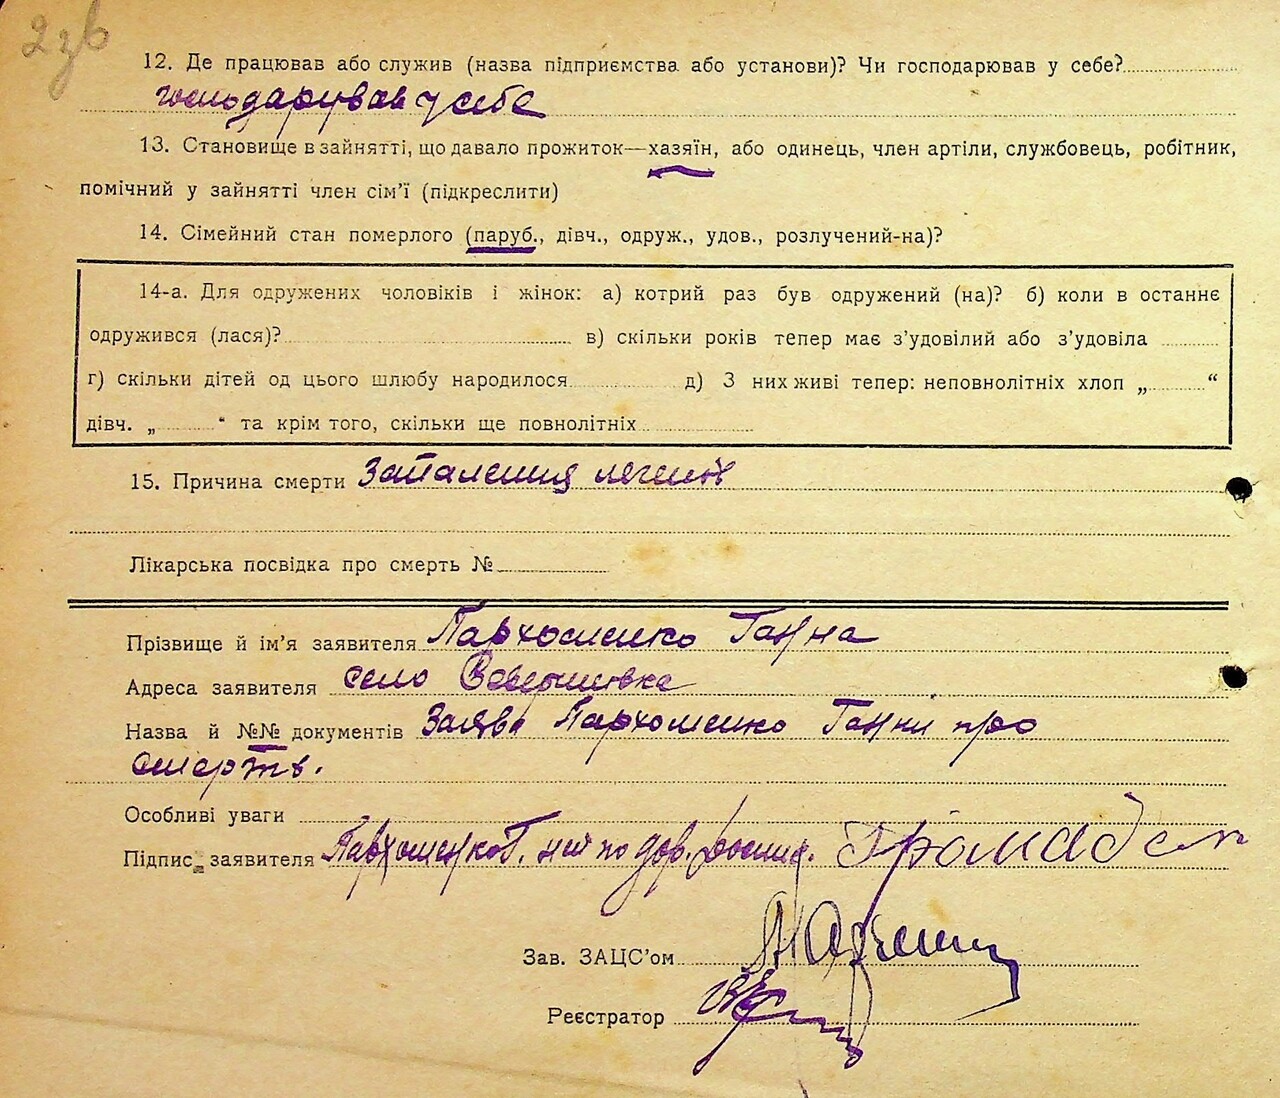 2зв
12. Де працював або служив (назва підприємства або установи)? Чи господарював у себе?
господарував у себе
13. Становище в зайнятті, що давало прожиток—хазяїн, або одинець, член артіли, службовець, робітник,
помічний у зайнятті член сім’ї (підкреслити)
14. Сімейний стан померлого (паруб., дівч., одруж., удов., розлучений-на)?
14-а. Для одружених чоловіків і жінок: а) котрий раз був одружений (на)? б) коли в останнє
одружився (лася)? в) скільки років тепер має з’удовілий або з’удовіла
г) скільки дітей од цього шлюбу народилося д) З них живі тепер: неповнолітніх хлоп „ “
дівч. „ “ та крім того, скільки ще повнолітніх
15. Причина смерти Запалення легенів
Лікарська посвідка про смерть №
Прізвище й ім’я заявителя Пархоменко Ганна
Адреса заявителя село
Назва й №№ документів Заява Пархоменко Ганни про
смерть.
Особливі уваги
Підпис заявителя Пархоменко Г. по дов.
Зав. ЗАЦС’ом
Реєстратор